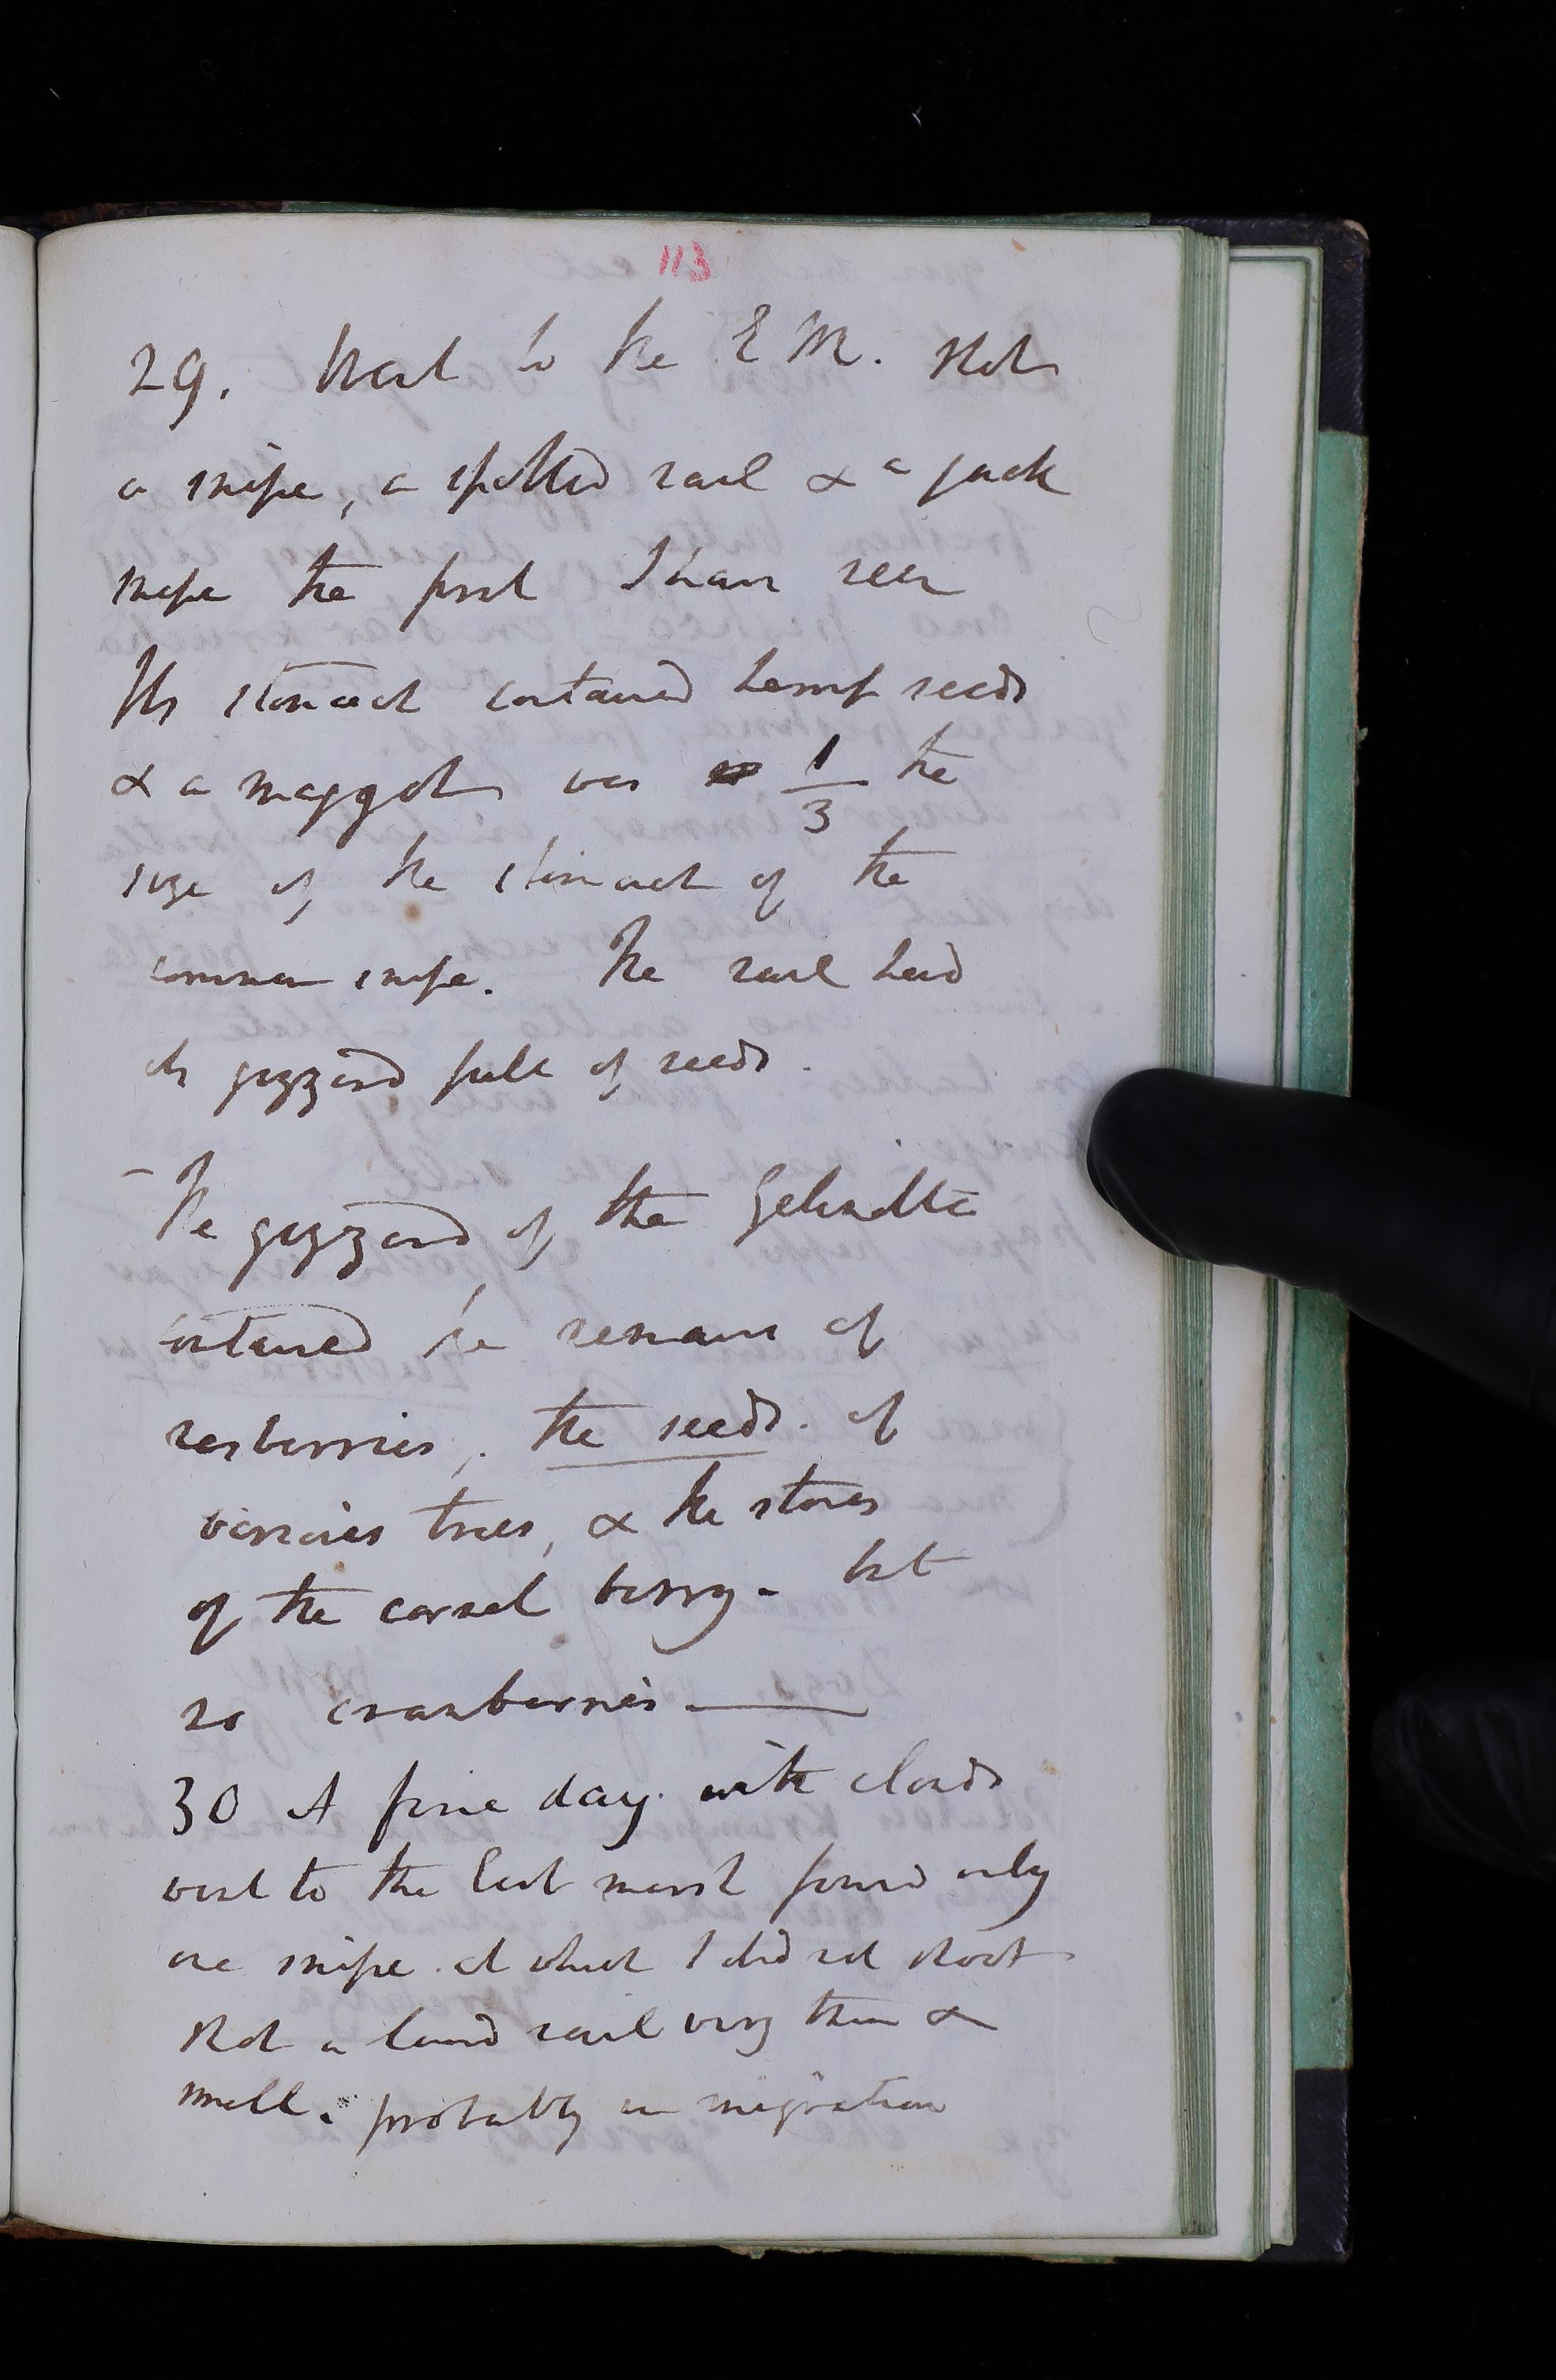 113
29. Went to the E M. Shot
a snipe, a spotted rail & a jack
snipe the first I have seen
Its stomach contained hemp seeds
& a maggot was 1/3 the
size of the stomach of the
common snipe. The rail had
its gizzard full of seeds.
- The gizzard of the Gelinotte
contained the remains of
rasberries, the seeds of
various trees, & the stones
of the cornel berry - but
no cranberries —
30 A fine day. with clouds
went to the last marsh found only
one snipe at which I did not shoot
Shot a land rail very thin &
small. probably in migration